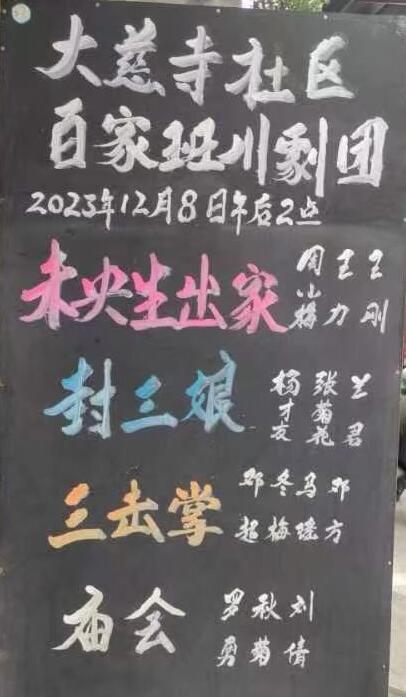 大慈寺社区
百家班川剧团
2023年12月8日午后2点
未央生出家 周小梅 王力 王刚
封三娘 杨才友 张菊花 兰君
三击掌 邓超 冬梅 马瑶 邓方
庙会 罗勇 秋菊 刘倩